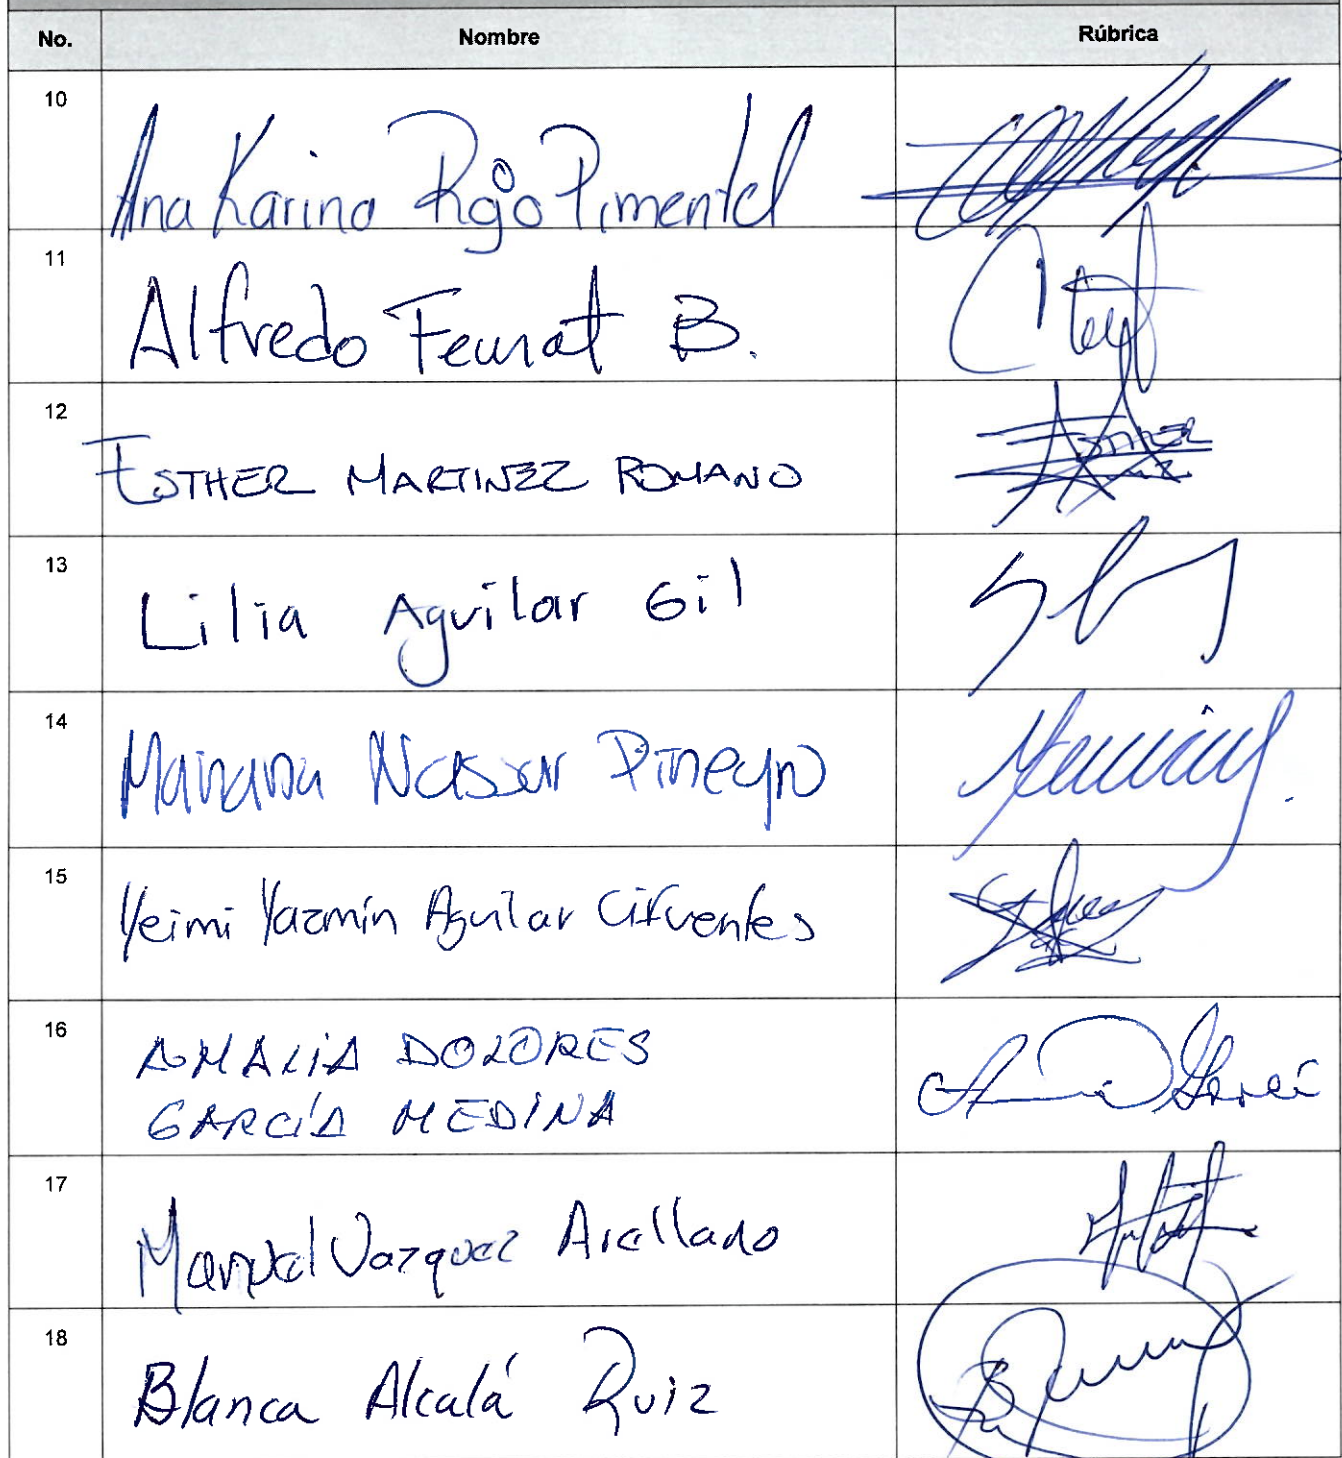 No. Nombre Rúbrica
10 Ana Karina Rojo Pimentel
11 Alfredo Femat B.
12 ESTHER MARTINEZ ROMANO
13 Lilia Aguilar Gil
14 Mariana Nassar Piñeyro
15 Yeimi Yazmín Aguilar Cifuentes
16 AMALIA DOLORES
GARCÍA MEDINA
17 Vazquez Arellano
18 Blanca Alcalá Ruiz